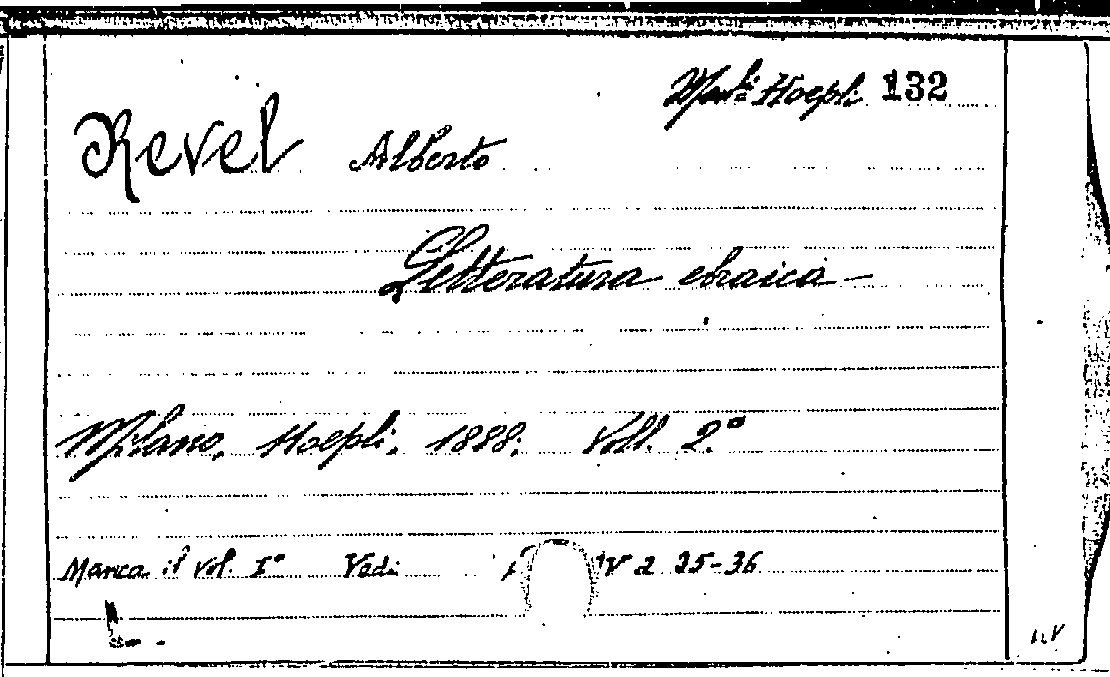 Man.li Hoepli 132
Revel Alberto
Letteratura ebraica —
Milano, Hoepli, 1888. Voll. 2.°
Manca il vol. I° Vedi IV 2 25-36